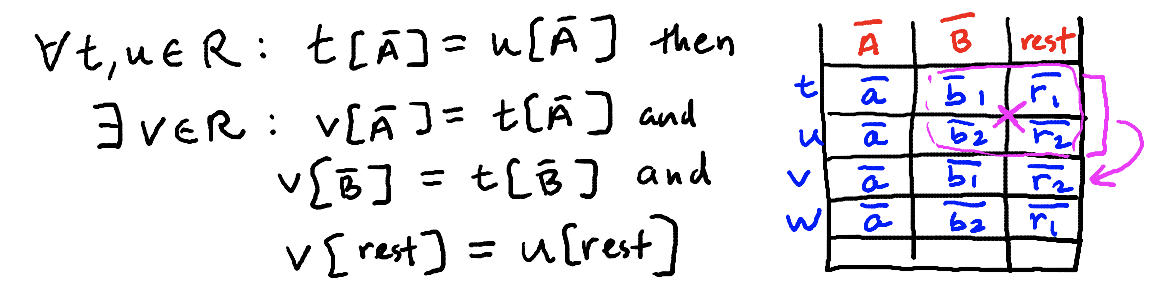 ∀t,u∈R : t[Ā] = u[Ā] then
∃v∈R : v[Ā] = t[Ā] and
v[B̄] = t[B̄] and
v[rest] = u[rest]
Ā B̄ rest
t ā b̄1 r̄1
u ā b̄2 r̄2
v ā b̄1 r̄2
w ā b̄2 r̄1